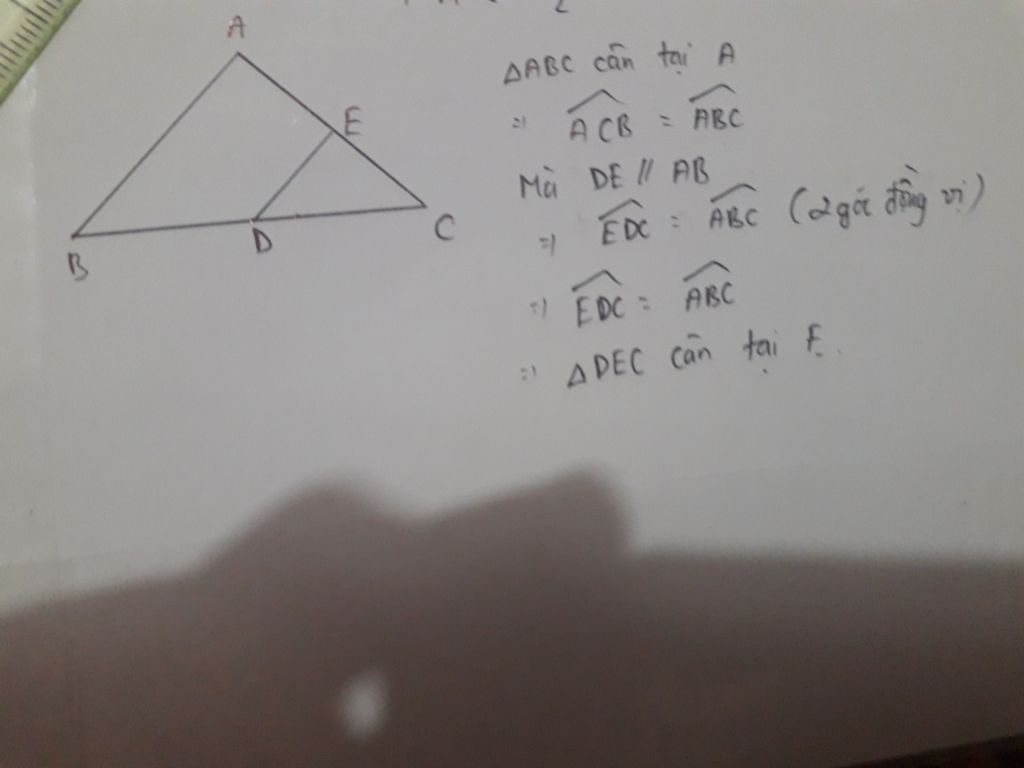 A
E
B
D
C
△ABC cân tại A
=> ACB = ABC
Mà DE // AB
=> EDC = ABC (2 góc đồng vị)
=> EDC = ABC
=> △DEC cân tại E.